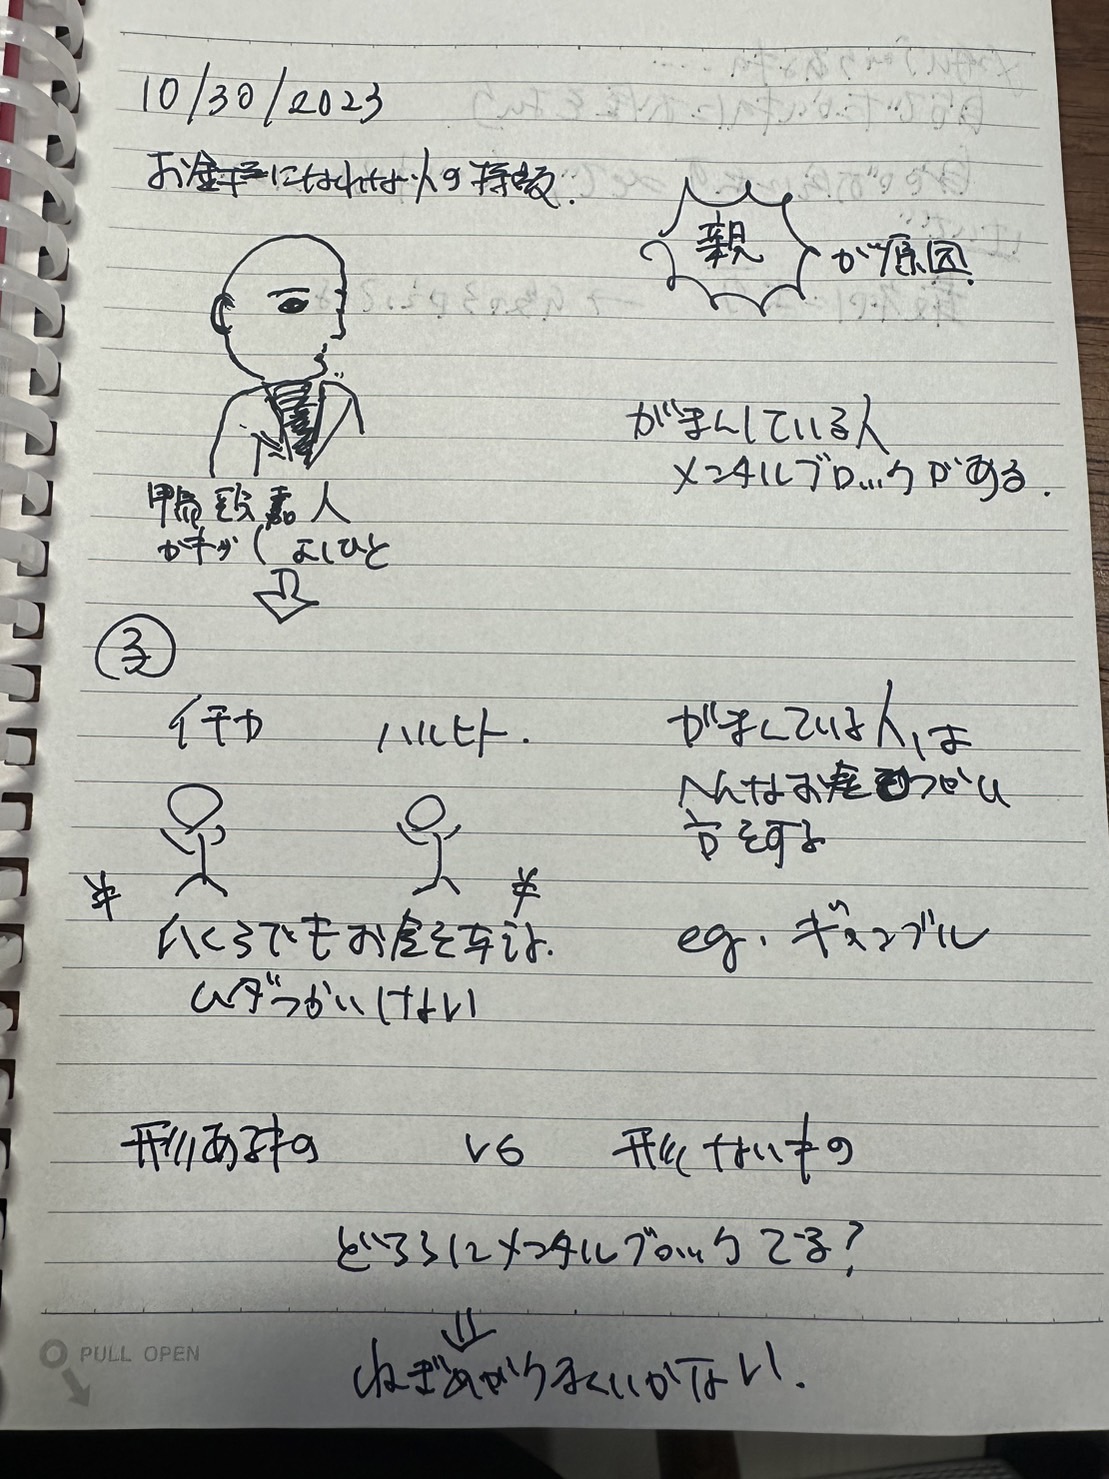 10/30/2023
お金持になれない人の特徴.
親 が原因.
がまんしている人
メンタルブロックがある.
鴨頭嘉人
かもがしらよしひと
子
イチカ ハルヒト.
がまんしている人は
へんなお金のつかい
方をする
¥ ¥
いくらでもお金を
ムダづかいしない
eg. ギャンブル
形あるもの vs 形ないもの
どちらにメンタルブロックでる?
ねぎあがうまくいかない.
PULL OPEN